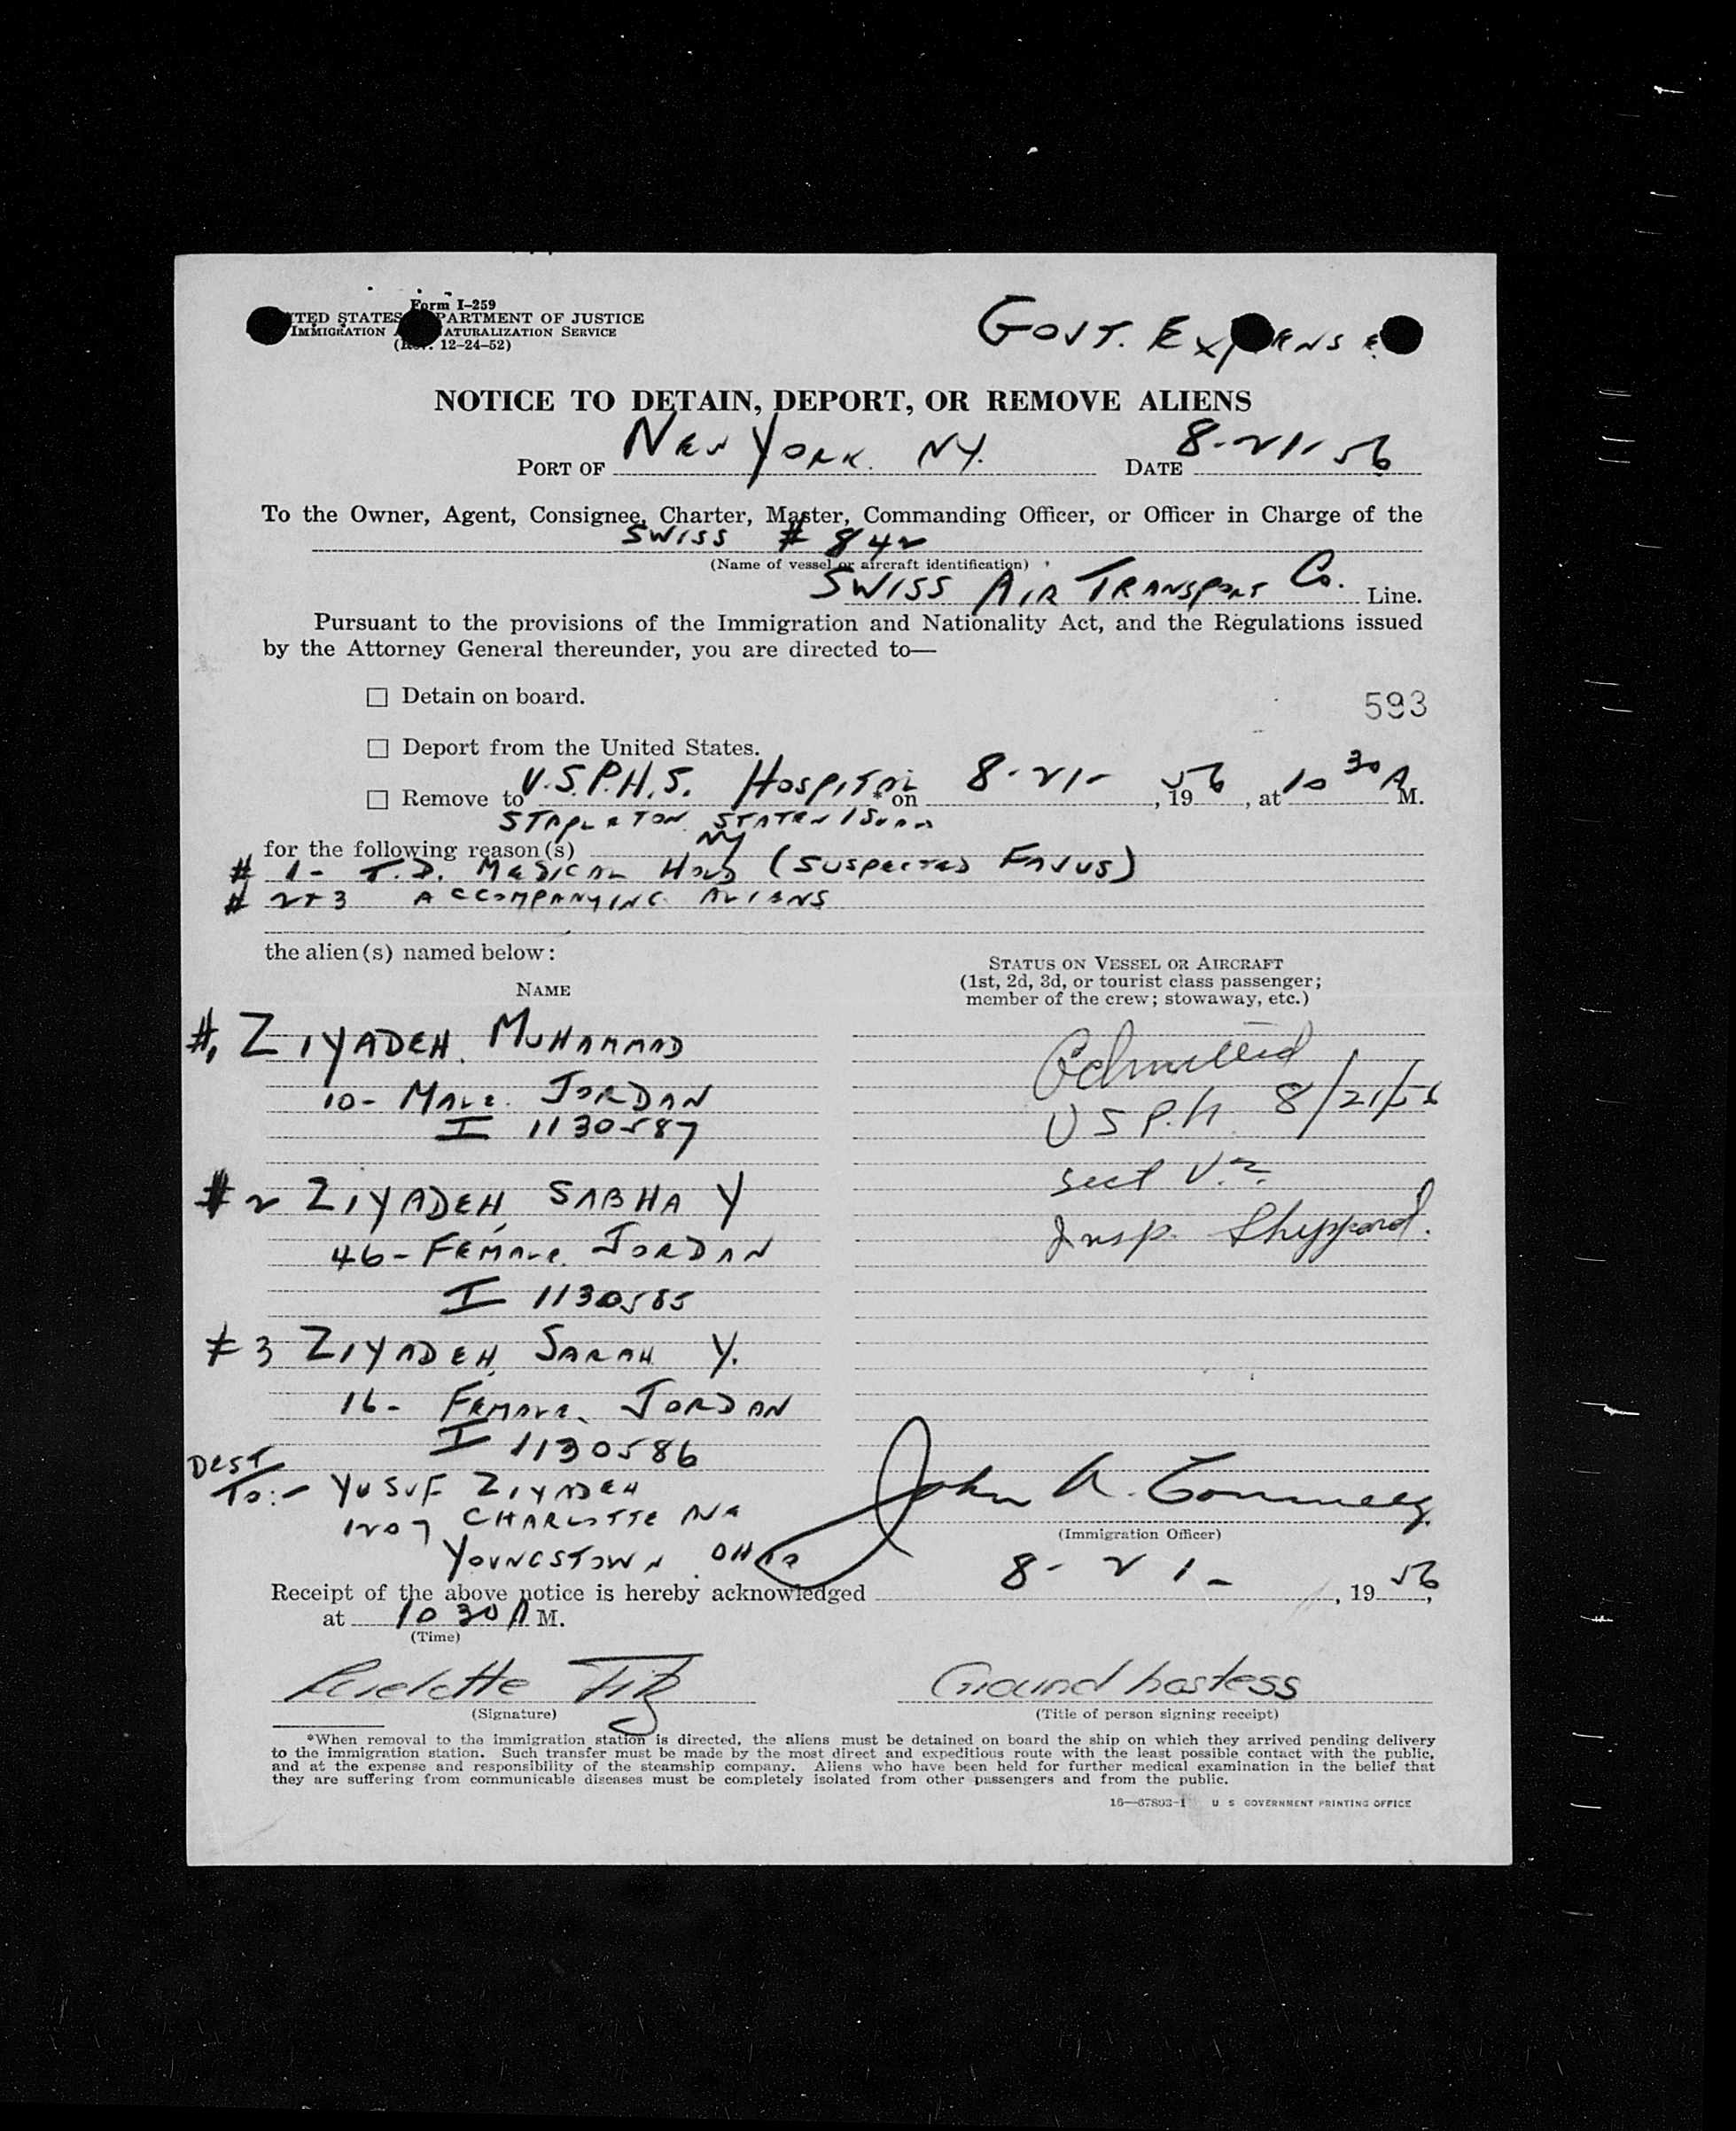 Form I-259
UNITED STATES DEPARTMENT OF JUSTICE
IMMIGRATION AND NATURALIZATION SERVICE
(Rev. 12-24-52)
GOVT. EXPENSE
NOTICE TO DETAIN, DEPORT, OR REMOVE ALIENS
PORT OF NEW YORK. NY. DATE 8-21-56
To the Owner, Agent, Consignee, Charter, Master, Commanding Officer, or Officer in Charge of the
SWISS # 842
(Name of vessel or aircraft identification)
SWISS AIR TRANSPORT Co. Line.
Pursuant to the provisions of the Immigration and Nationality Act, and the Regulations issued
by the Attorney General thereunder, you are directed to—
☐ Detain on board.
593
☐ Deport from the United States.
☐ Remove to U.S.P.H.S. HOSPITAL * on 8-21-, 1956, at 10 30 A M.
STAPLETON STATEN ISLAND
NY
for the following reason(s)
# 1- T.D. MEDICAL HOLD (SUSPECTED FAVUS)
# 2+3 ACCOMPANYING ALIENS
the alien(s) named below:
NAME
STATUS ON VESSEL OR AIRCRAFT
(1st, 2d, 3d, or tourist class passenger;
member of the crew; stowaway, etc.)
#1 ZIYADEH, MUHAMMAD
10- MALE. JORDAN
I 1130587
Admitted
USP.H 8/21/56
Insp. Sheppard.
# 2 ZIYADEH, SABHA Y
46- FEMALE. JORDAN
I 1130585
# 3 ZIYADEH, SARAH Y.
16- FEMALE. JORDAN
I 1130586
DEST
TO:- YUSUF ZIYADEH
1207 CHARLOTTE AVE
YOUNGSTOWN. OHIO
John A. Connelly
(Immigration Officer)
Receipt of the above notice is hereby acknowledged 8-21-, 1956,
at 10 30 A M.
(Time)
(Signature)
Ground hostess
(Title of person signing receipt)
*When removal to the immigration station is directed, the aliens must be detained on board the ship on which they arrived pending delivery
to the immigration station. Such transfer must be made by the most direct and expeditious route with the least possible contact with the public,
and at the expense and responsibility of the steamship company. Aliens who have been held for further medical examination in the belief that
they are suffering from communicable diseases must be completely isolated from other passengers and from the public.
16—67803-1 U S GOVERNMENT PRINTING OFFICE